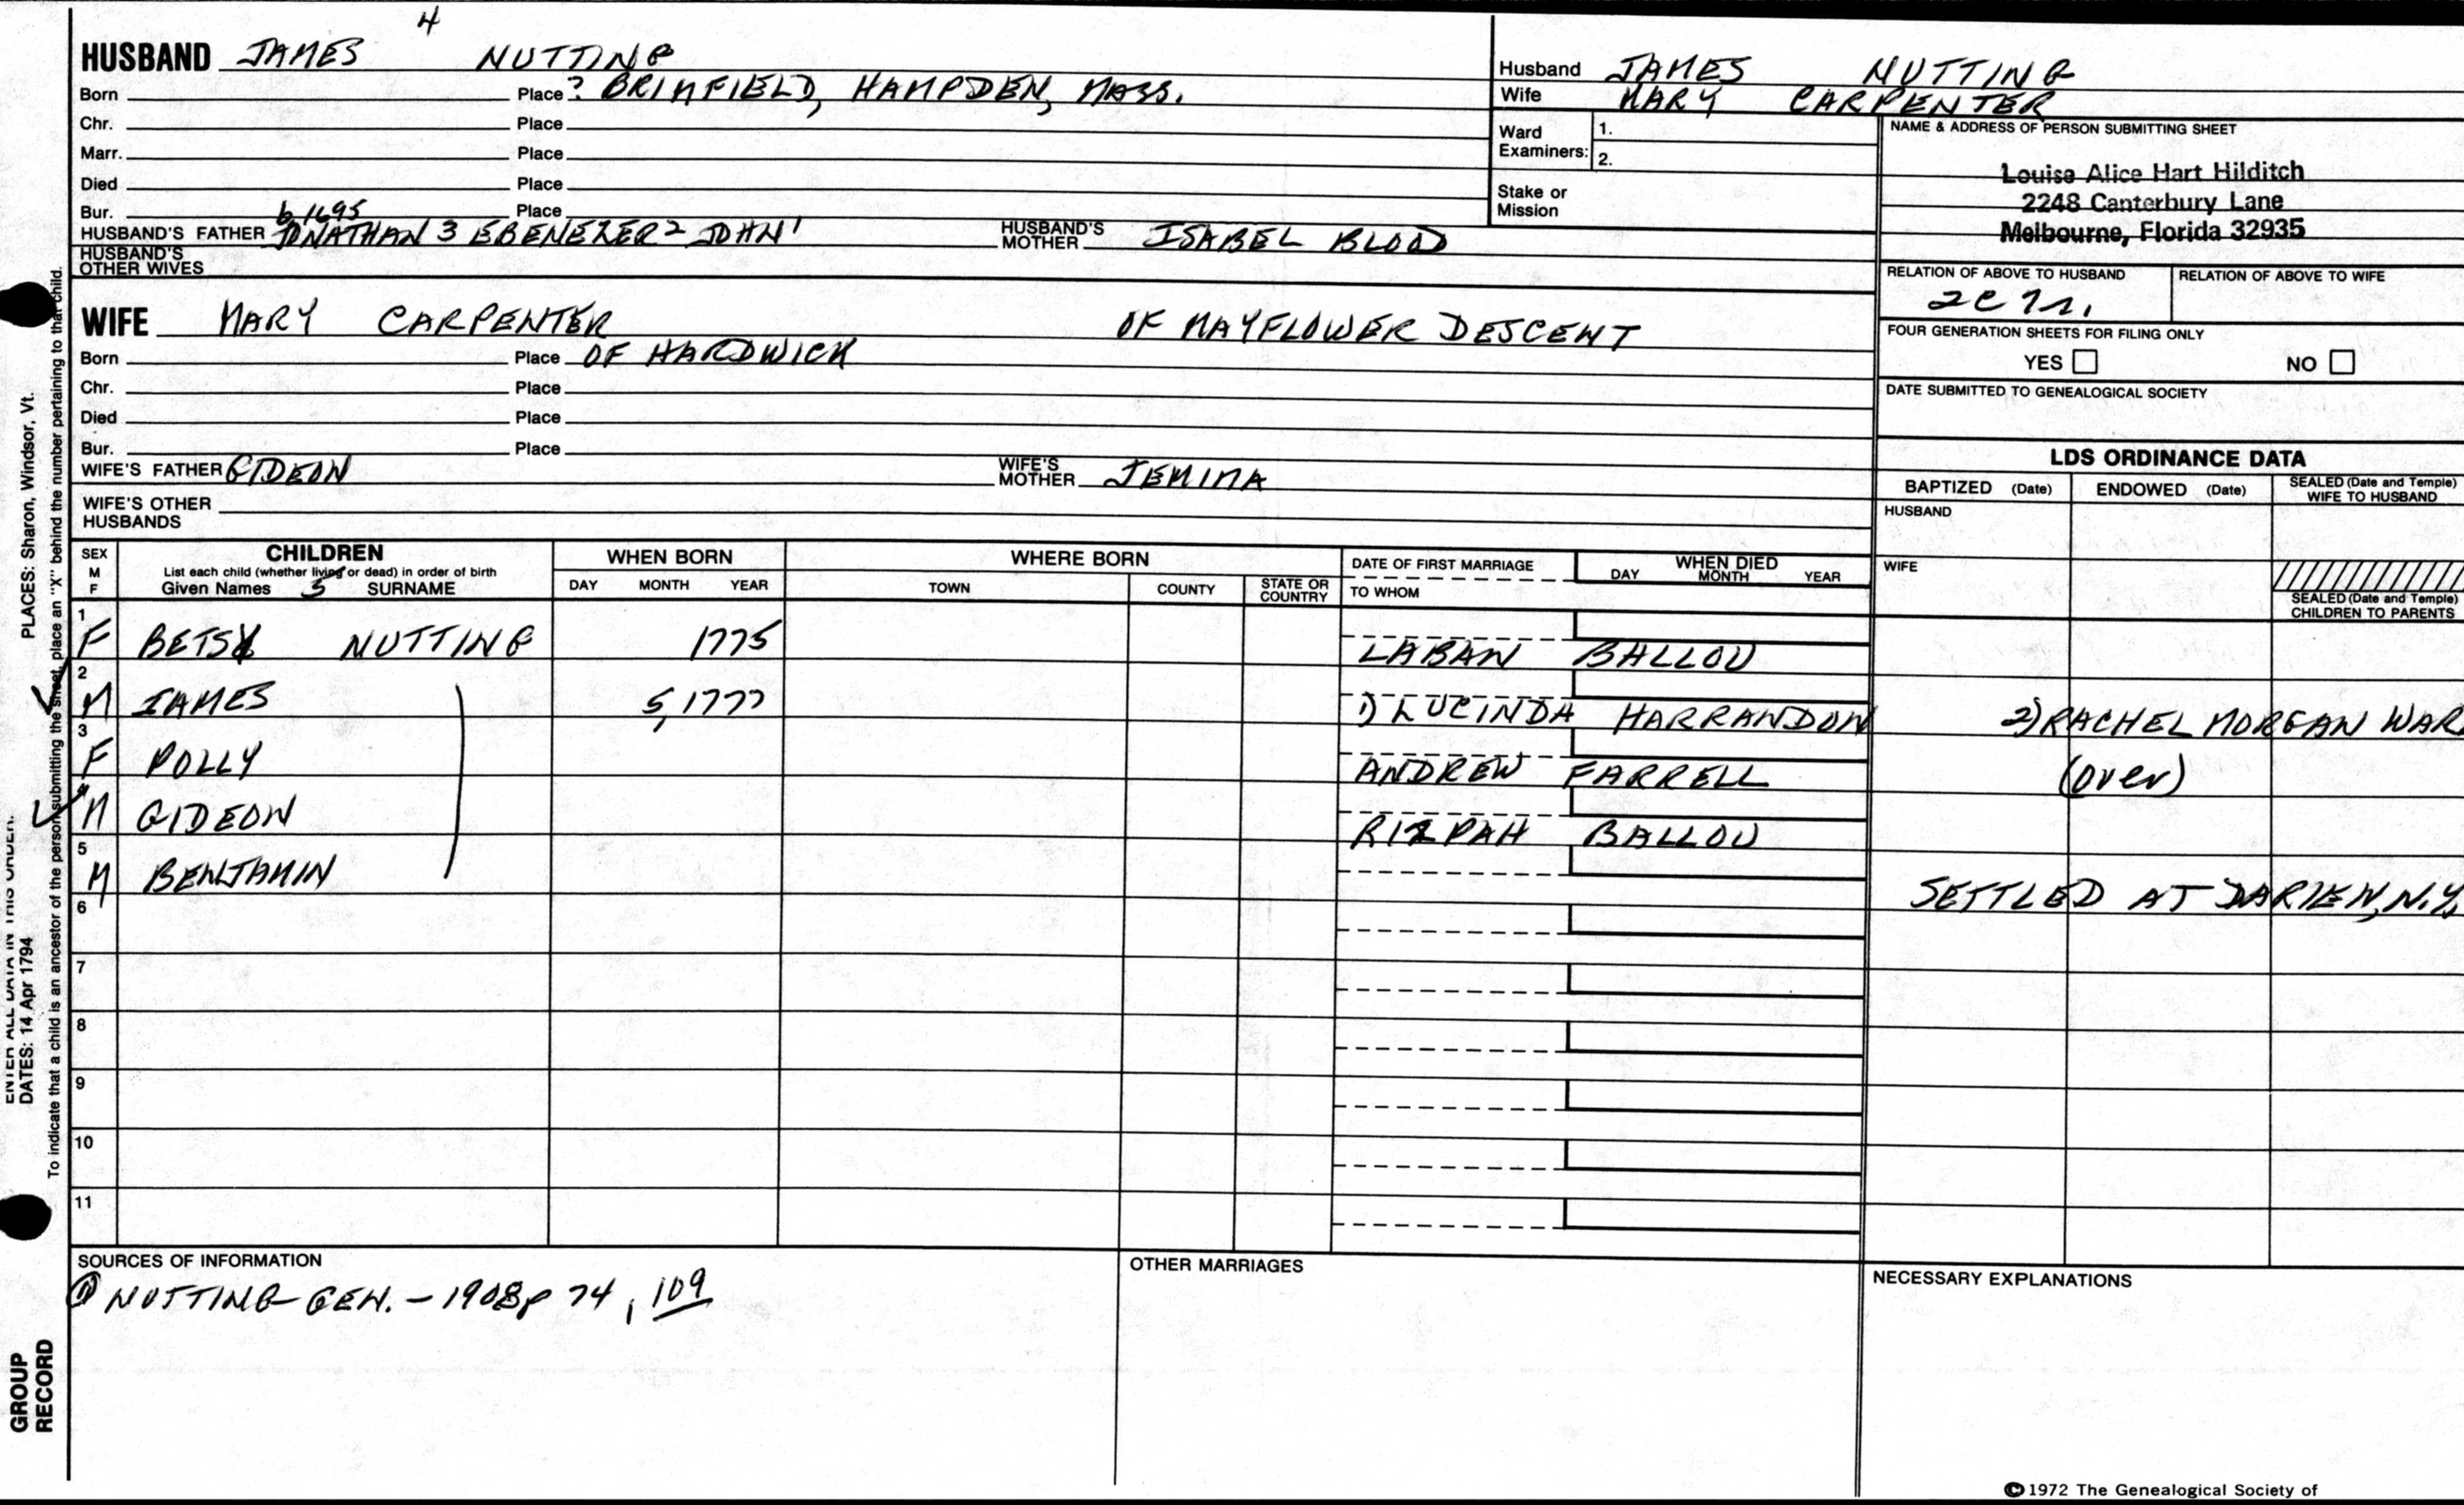 4
HUSBAND JAMES NUTTING
Born Place ? BRIMFIELD, HAMPDEN, MASS.
Chr. Place
Marr. Place
Died Place
Bur. Place
b 1695
HUSBAND'S FATHER JONATHAN 3 EBENEZER 2 JOHN 1 HUSBAND'S MOTHER ISABEL BLOOD
HUSBAND'S OTHER WIVES
WIFE MARY CARPENTER OF MAYFLOWER DESCENT
Born Place OF HARDWICK
Chr. Place
Died Place
Bur. Place
WIFE'S FATHER GIDEON WIFE'S MOTHER JEMIMA
WIFE'S OTHER HUSBANDS
Husband JAMES NUTTING
Wife MARY CARPENTER
Ward Examiners: 1.
2.
Stake or Mission
NAME & ADDRESS OF PERSON SUBMITTING SHEET
Louise Alice Hart Hilditch
2248 Canterbury Lane
Melbourne, Florida 32935
RELATION OF ABOVE TO HUSBAND RELATION OF ABOVE TO WIFE
FOUR GENERATION SHEETS FOR FILING ONLY
YES NO
DATE SUBMITTED TO GENEALOGICAL SOCIETY
LDS ORDINANCE DATA
BAPTIZED (Date) ENDOWED (Date) SEALED (Date and Temple) WIFE TO HUSBAND
HUSBAND
WIFE
SEALED (Date and Temple) CHILDREN TO PARENTS
SEX M F
CHILDREN
List each child (whether living or dead) in order of birth
Given Names 5 SURNAME
WHEN BORN
DAY MONTH YEAR
WHERE BORN
TOWN COUNTY STATE OR COUNTRY
DATE OF FIRST MARRIAGE
TO WHOM
WHEN DIED
DAY MONTH YEAR
1 F BETSY NUTTING 1775 LABAN BALLOU
2 M JAMES 5, 1777 1) LUCINDA HARRANDON 2) RACHEL MORGAN WAR
3 F POLLY ANDREW FARRELL (over)
4 M GIDEON RIZPAH BALLOU
5 M BENJAMIN SETTLED AT DARIEN, N.Y.
6
7
8
9
10
11
SOURCES OF INFORMATION
① NUTTING GEN. - 1908 p 74, 109
OTHER MARRIAGES
NECESSARY EXPLANATIONS
© 1972 The Genealogical Society of
PLACES: Sharon, Windsor, Vt.
ENTER ALL DATA IN THIS ORDER:
DATES: 14 Apr 1794
To indicate that a child is an ancestor of the person submitting the sheet, place an "X" behind the number pertaining to that child.
GROUP
RECORD